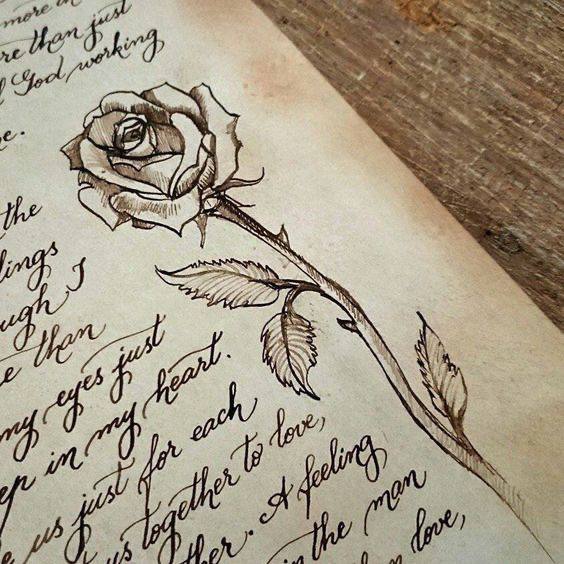 more in
re than just
God working
e.
the
lings
ugh I
e than
my eyes just
ep in my heart.
e us just for each
us together to love,
ther. A feeling
in the man
love,